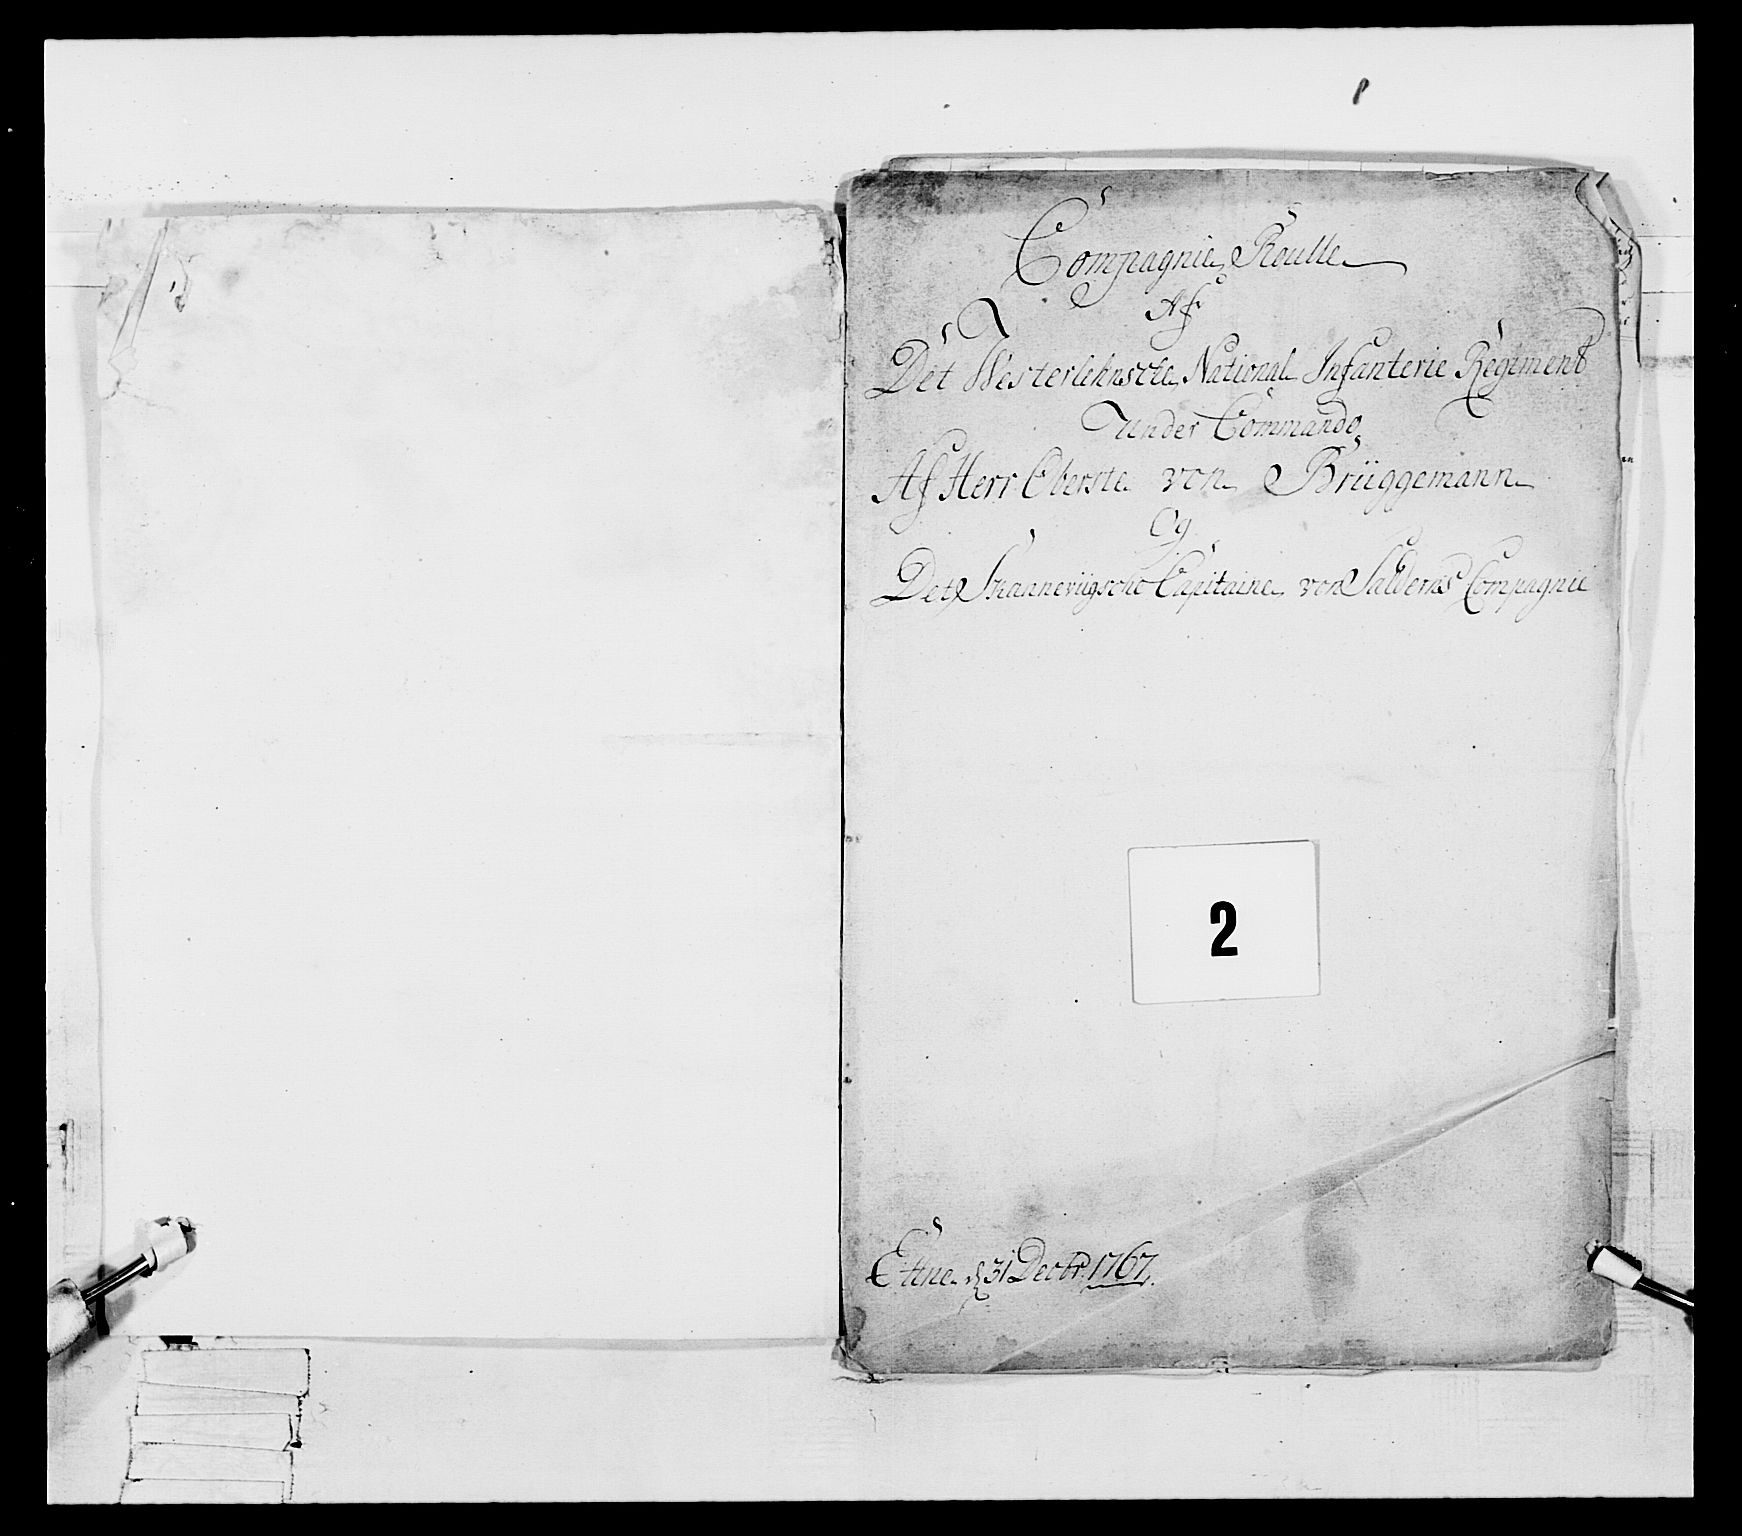 Compagnie Roulle
Af
Det Westerlehnsche National Infanterie Regiment
under Commando
Af Herr Oberste von Brüggemann
Og
Det Skanneviigsche Capitaine von Salderns Compagnie
2
Ettne d 31 Decbr: 1767.